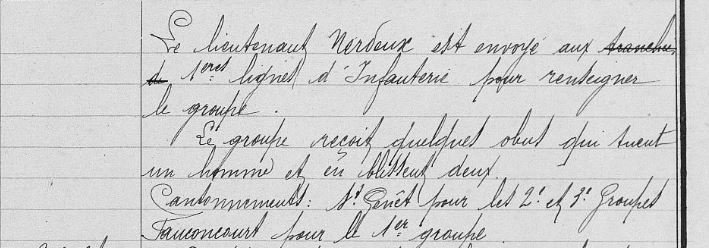 Le lieutenant Nerdeux est envoyé aux tranchées
de 1eres lignes d'Infanterie pour renseigner
le groupe.
Le groupe reçoit quelques obus qui tuent
un homme et en blessent deux.
Cantonnements: St Genêt pour les 2e et 3e Groupes
Fauconcourt pour le 1er groupe.